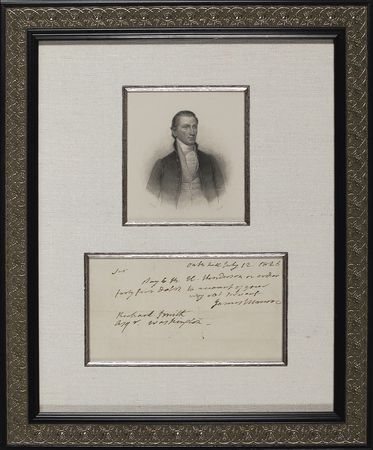 Sir Oak Hill July 12 1826
Pay to Mr H. Henderson or order
forty five dolrs to account of your
very obt servant
James Monroe
Richard Smith
Esqr Washington